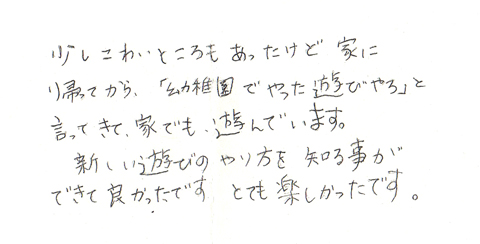 少しこわいところもあったけど 家に
帰ってから、「幼稚園でやった遊びやろ」と
言ってきて、家でも遊んでいます。
新しい遊びのやり方を 知る事が
できて良かったです とても楽しかったです。